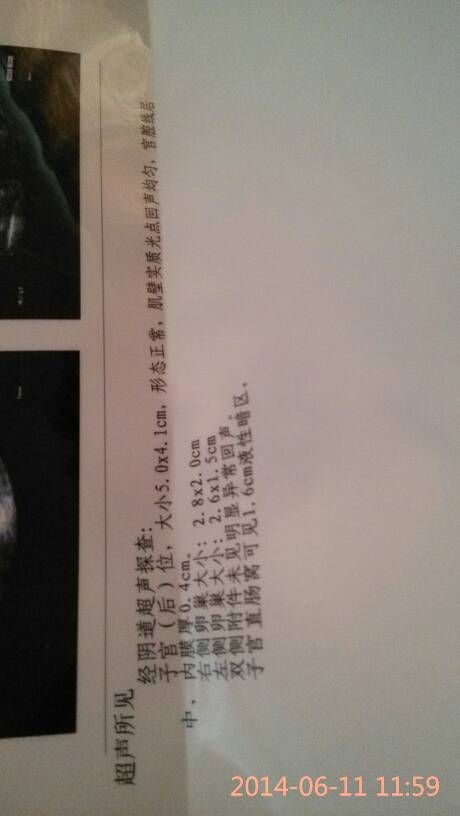 超声所见
经阴道超声探查:
子宫（后）位，大小5.0x4.1cm，形态正常，肌壁实质光点回声均匀，宫腔线居
中，内膜厚0.4cm。
右侧卵巢大小：2.8x2.0cm
左侧卵巢大小：2.6x1.5cm
双侧附件未见明显异常回声。
子宫直肠窝可见1.6cm液性暗区。
2014-06-11 11:59